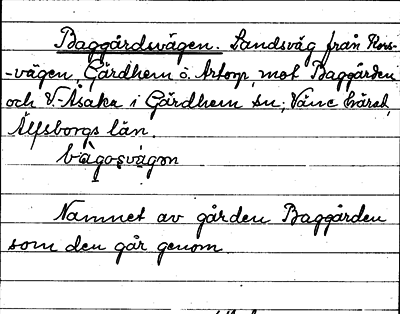 Baggårdsvägen. Landsväg från Kors-
-vägen, Gärdhem ö. Artorp, mot Baggården
och V. Åsaka i Gärdhem sn; Väne härad,
Älfsborgs län.
bàgo̱svä̀gα̱n
Namnet av gården Baggården
som den går genom